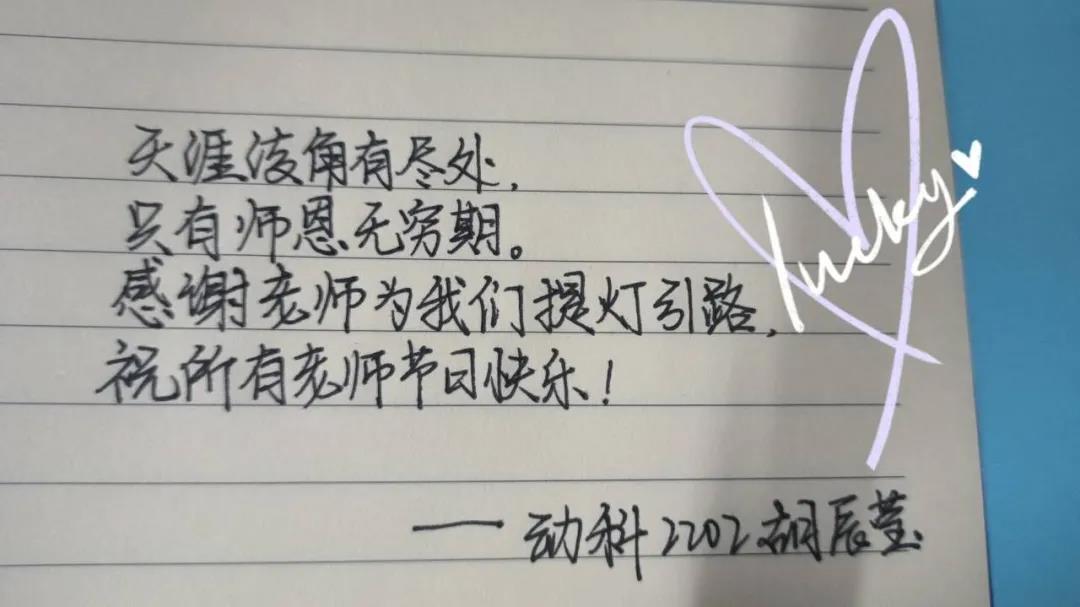 天涯海角有尽处,
只有师恩无穷期。
感谢老师为我们提灯引路,
祝所有老师节日快乐!
——动科2202胡辰莹
lucky